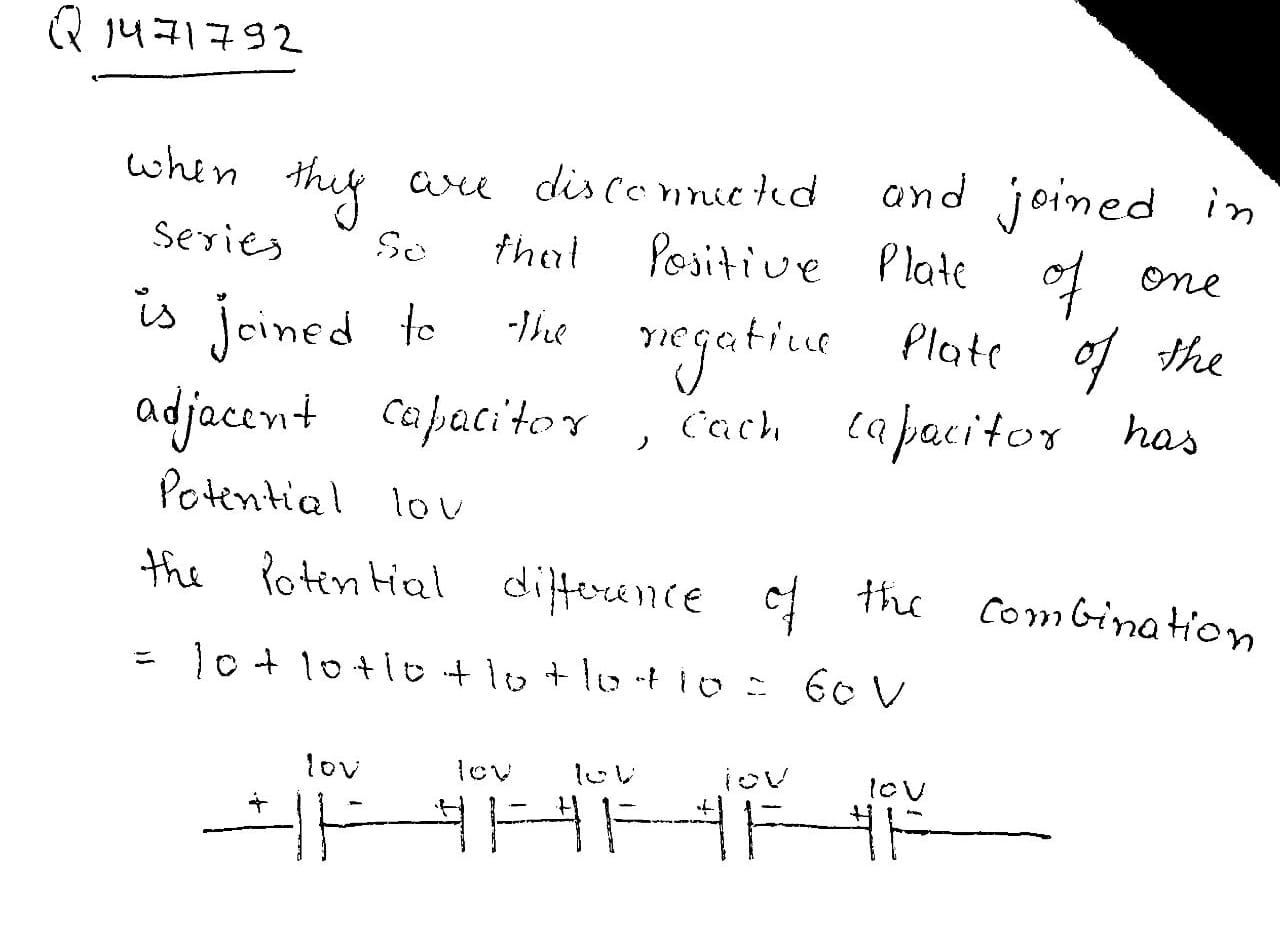 Q 1471792
when they are disconnected and joined in
series so that Positive Plate of one
is joined to the negative Plate of the
adjacent capacitor, each capacitor has
Potential 10v
the Potential difference of the combination
= 10 + 10 + 10 + 10 + 10 + 10 = 60 V
10v 10v 10v 10v 10v
+ - + - + - + - + -